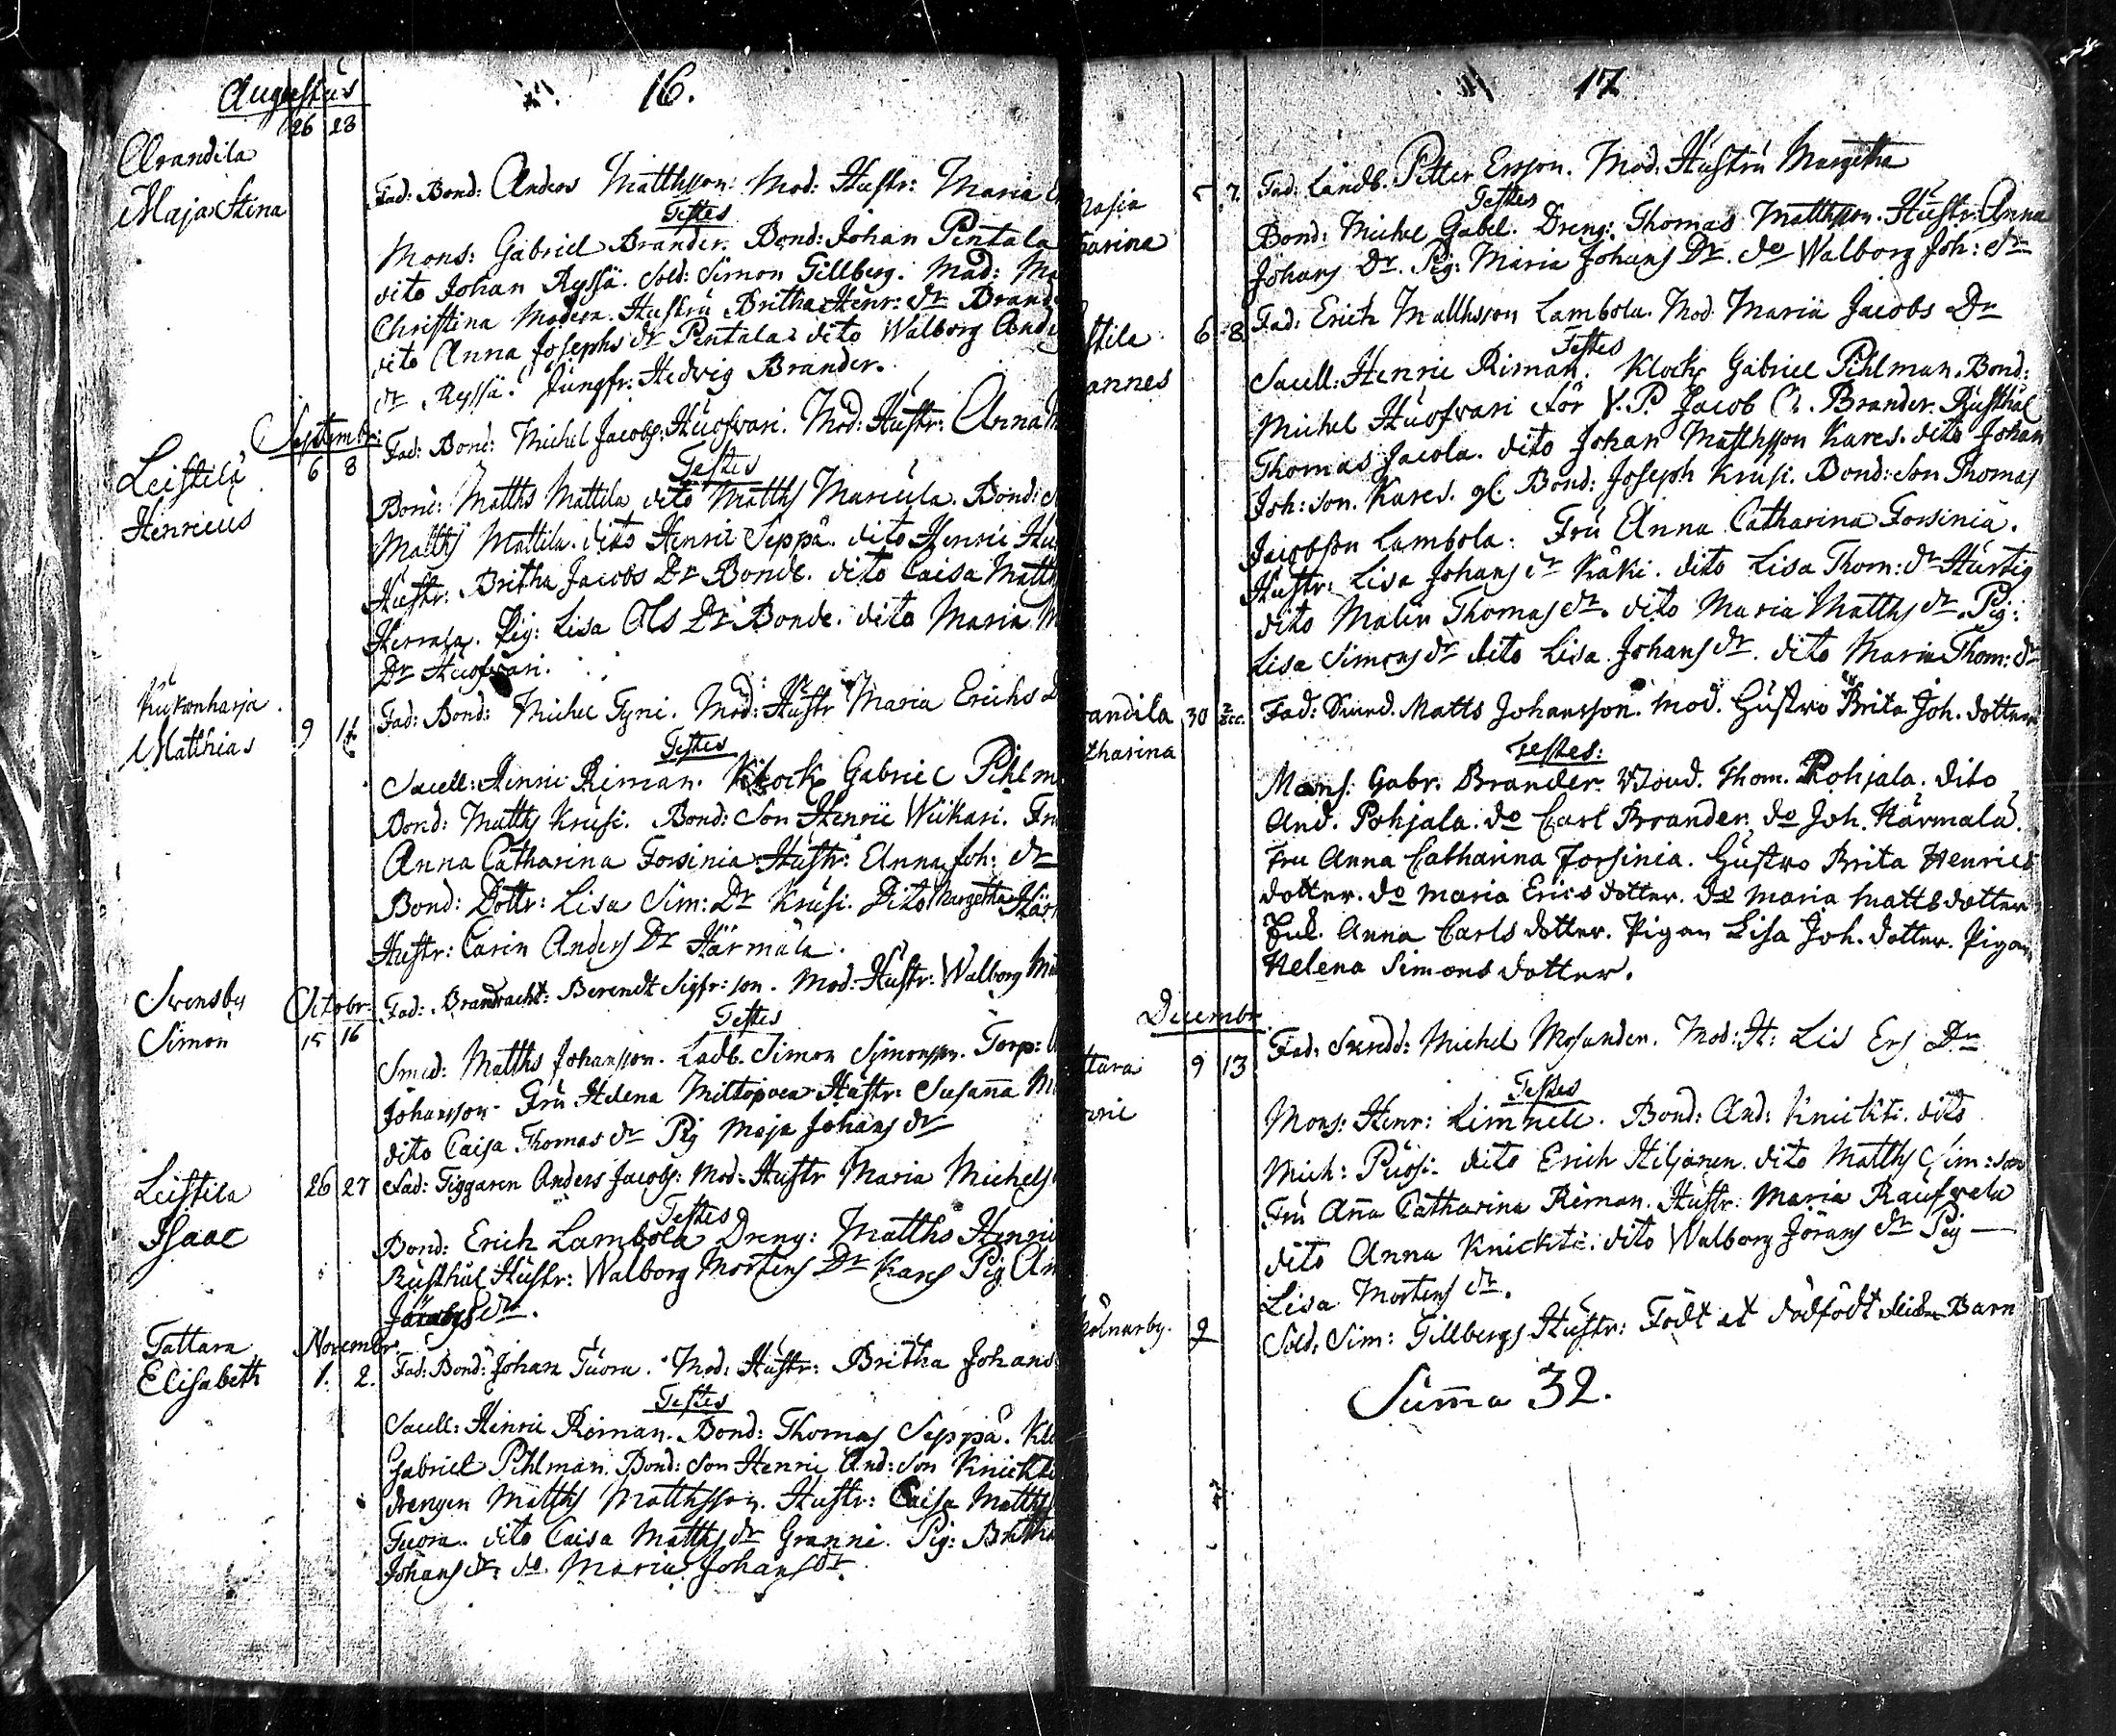 Augustus
16.
26 28
Arandila
Maja Stina
Fad: Bond: Anders Matthsson. Mod: Hustr: Maria
Testes
Mons: Gabriel Brander. Bond: Johan Pentala
dito Johan Ryssä. Sold: Simon Gillberg. Mad:
Christina Modeen. Hustru Britha Henr: dr Brand
dito Anna Josephs dr Pentala. dito Walborg And
dr Ryssä. Jungfr: Hedvig Brander.
Septembr:
Leistilä
Henricus
6 8
Fad: Bond: Michel Jacobs: Huofvari. Mod: Hustr: Anna
Testes
Bond: Matths Mattila dito Matths Marcula. Bond:
Matths Mattila. dito Henric Seppä. dito Henric
Hustr: Britha Jacobs Dr Bonde. dito Caisa Matth
Herrala. Pig: Lisa Ols Dr Bonde. dito Maria
Dr Huofvari.
Kukonharja.
Matthias
9
Fad: Bond: Michel Tyni. Mod: Hustr Maria Erichs
Testes
Sacell: Henric Riman. Klock Gabriel Pihlm
Bond: Matths Krusi. Bond: Son Henric Wiikari.
Anna Catharina Forsinia. Hustr: Anna Joh: dr
Bond: Dottr: Lisa Sim: Dr Krusi. Dito Margetha
Hustr: Carin Anders Dr Härmälä.
Svensby
Simon
Octobr:
15 16
Fad: Berendt Sigfr: son. Mod: Hustr: Walborg
Testes
Smed: Matths Johansson. Ladb. Simon Simonsson. Torp:
Johansson. Fru Helena Hustr: Susana
dito Caisa Thomas dr Pig Maja Johans dr
Leistila
Isaac
26 27
Fad: Tiggaren Anders Jacobs: Mod: Hustr Maria Michels
Testes
Bond: Erich Lambola Dreng: Matths Henric
Rusthål Hustr: Walborg Mortens Dr Kares Pig
dr.
Tattara
Elisabeth
Novembr.
1. 2.
Fad: Bond: Johan Tuora. Mod: Hustr: Britha Johans
Testes
Sacell: Henric Riman. Bond: Thomas Seppä.
Gabriel Pihlman. Bond: Son Henric And: Son Knickti
drengen Matths Matthsson. Hustr: Caisa Matths
Tuora. dito Caisa Matths dr Granni. Pig: Britha
Johans dr. do Maria Johans dr.
17
5 7.
harina
Fad: Landb. Petter Ersson. Mod: Hustru Margetha
Testes
Bond: Michel Gabel. Dreng: Thomas Matthsson. Hustr: Anna
Johans Dr. Pig: Maria Johans Dr. do Walborg Joh: dr
stila
annes
6 8
Fad: Erich Matthsson Lambola. Mod Maria Jacobs Dr
Testes
Sacell: Henric Riman. Klock Gabriel Pihlman. Bond:
Michel Huofvari för V. P. Jacob Brander. Rusthål
Thomas Jacola. dito Johan Matthsson Kares. dito Johan
Joh: son. Kares. gl. Bond: Joseph Krusi. Bond: Son Thomas
Jacobson Lambola. Fru Anna Catharina Forsinia.
Hustr: Lisa Johans dr Käki. dito Lisa Thom: dr Hurtig
dito Malin Thomas dr. dito Maria Matths dr. Pig:
Lisa Simons dr dito Lisa Johans dr. dito Maria Thom: dr
andila
tharina
30 2 Dec.
Fad: Matts Johansson. Mod. Hustro Brita Joh. dotter
Testes:
Mons: Gabr. Brander. Bond. Thom. Pohjala. dito
And. Pohjala. do Carl Brander. do Joh. Härmalä.
Fru Anna Catharina Forsinia. Hustro Brita Henrics
dotter. do Maria Erics dotter. do Maria Matts dotter
Anna Carls dotter. Pigan Lisa Joh. dotter. Pigan
Helena Simons dotter.
Decembr.
ttara
nric
9 13
Fad: Michel Mosander. Mod: H: Lis Ers Dr
Testes
Mons: Henr: Limnell. Bond: And: Knickti. dito
Mich: Puosi. dito Erich Hiljanen. dito Matths Sim: son
Fru Ana Catharina Riman. Hustr: Maria Raufvela
dito Anna Knickti. dito Walborg Jörans dr Pig
Lisa Mortens dr.
9
Sold: Sim: Gillbergs Hustr: Födt et dödfödt Barn
Suma 32.